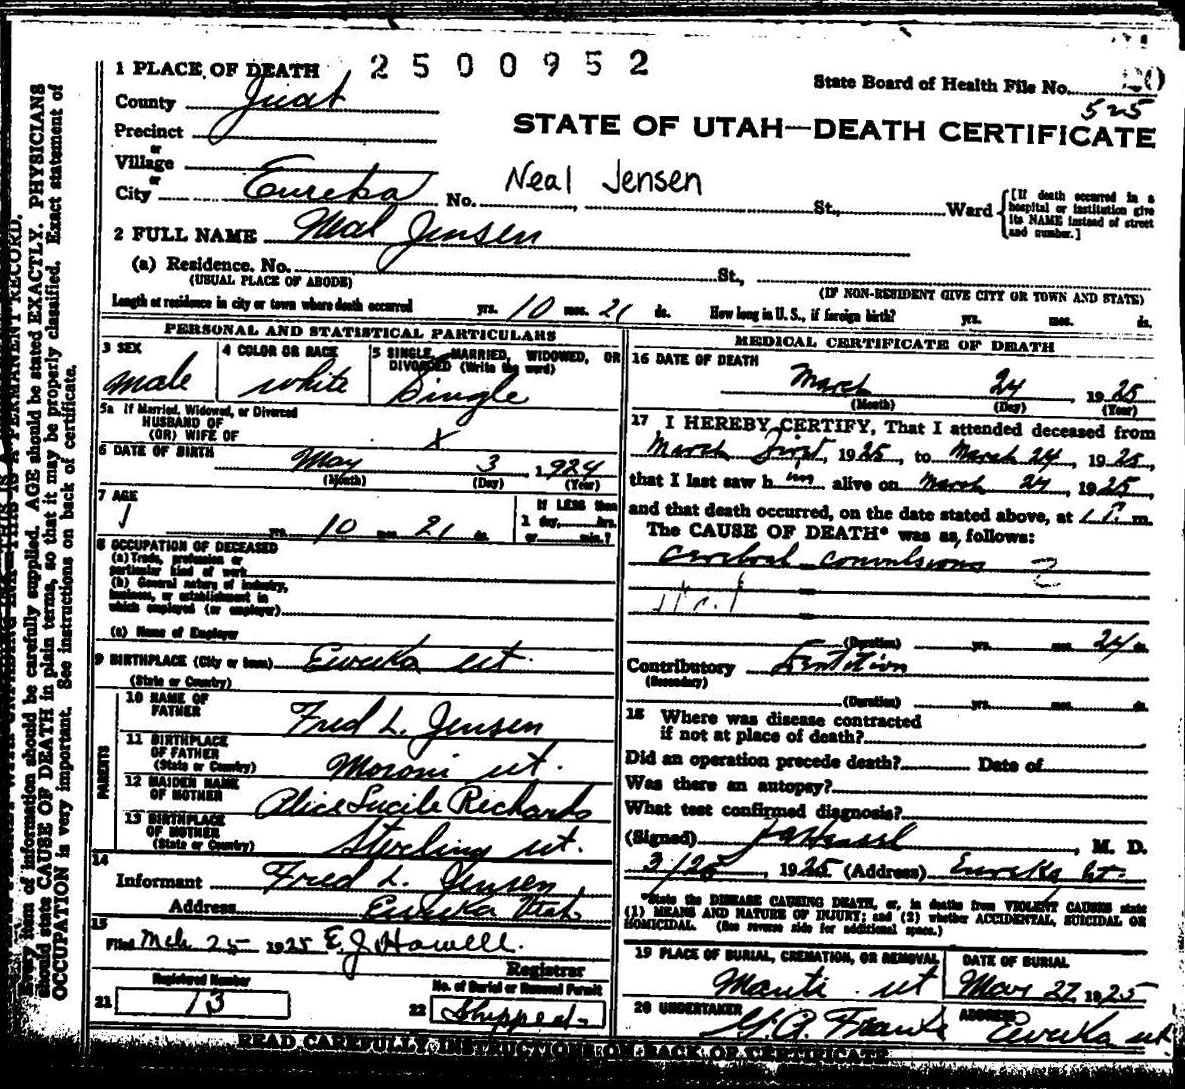 1 PLACE OF DEATH 2500952
State Board of Health File No. 20
525
County Juab
STATE OF UTAH—DEATH CERTIFICATE
Precinct
or
Village
or
City Eureka No. St., Ward
Neal Jensen
[If death occurred in a hospital or institution give its NAME instead of street and number.]
2 FULL NAME Neal Jensen
(a) Residence. No. St.,
(USUAL PLACE OF ABODE) (IF NON-RESIDENT GIVE CITY OR TOWN AND STATE)
Length of residence in city or town where death occurred yrs. 10 mos. 21 ds. How long in U. S., if foreign birth? yrs. mos. ds.
PERSONAL AND STATISTICAL PARTICULARS
3 SEX 4 COLOR OR RACE 5 SINGLE, MARRIED, WIDOWED, OR DIVORCED (Write the word)
male white Single
5a If Married, Widowed, or Divorced
HUSBAND OF
(OR) WIFE OF x
6 DATE OF BIRTH May 3 1924
(Month) (Day) (Year)
7 AGE IF LESS than
yrs. 10 mos. 21 ds. 1 day, hrs.
or min.?
8 OCCUPATION OF DECEASED
(a) Trade, profession or
particular kind of work
(b) General nature of industry,
business, or establishment in
which employed (or employer)
(c) Name of Employer
9 BIRTHPLACE (City or town) Eureka ut.
(State or Country)
PARENTS
10 NAME OF
FATHER Fred L. Jensen
11 BIRTHPLACE
OF FATHER
(State or Country) Moroni ut.
12 MAIDEN NAME
OF MOTHER Alice Lucile Richards
13 BIRTHPLACE
OF MOTHER
(State or Country) Sterling ut.
14
Informant Fred L. Jensen,
Address Eureka Utah
15
Filed Mch 25 1925 E. J. Howell.
Registrar
Registered Number No. of Burial or Removal Permit
21 13 22 Shipped
MEDICAL CERTIFICATE OF DEATH
16 DATE OF DEATH
March 24, 1925
(Month) (Day) (Year)
17 I HEREBY CERTIFY, That I attended deceased from
March First, 1925, to March 24, 1925,
that I last saw him alive on March 24, 1925,
and that death occurred, on the date stated above, at 1 P. m
The CAUSE OF DEATH* was as follows:
Cerebral convulsions
(Duration) yrs. mos. 24 ds.
Contributory Dentition
(Secondary)
(Duration) yrs. mos. ds.
18 Where was disease contracted
if not at place of death?
Did an operation precede death? Date of
Was there an autopsy?
What test confirmed diagnosis?
(Signed) M. D.
3/25, 1925 (Address) Eureka ut.
*State the DISEASE CAUSING DEATH, or, in deaths from VIOLENT CAUSES state
(1) MEANS AND NATURE OF INJURY; and (2) whether ACCIDENTAL, SUICIDAL OR
HOMICIDAL. (See reverse side for additional space.)
19 PLACE OF BURIAL, CREMATION, OR REMOVAL DATE OF BURIAL
Manti ut Mar 27, 1925
20 UNDERTAKER ADDRESS
Eureka ut
READ CAREFULLY INSTRUCTIONS ON BACK OF CERTIFICATE
Every item of information should be carefully supplied. AGE should be stated EXACTLY. PHYSICIANS
should state CAUSE OF DEATH in plain terms, so that it may be properly classified. Exact statement of
OCCUPATION is very important. See instructions on back of certificate.